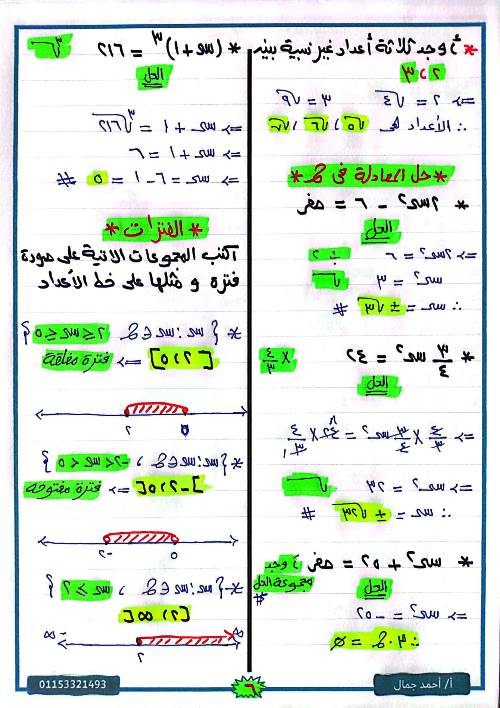 * أوجد ثلاثة أعداد غير نسبية بينه
٢ ، ٣
=> ٢ = √٤      ٣ = √٩
∴ الأعداد هى √٥ ، √٦ ، √٧
* حل المعادلة فى ح *
* ٢س٢ - ٦ = صفر
الحل
=> ٢س٢ = ٦      ÷ ٢
س٢ = ٣      √
∴ س = ± √٣ #
* ٣/٤ س٢ = ٢٤      × ٤/٣
الحل
=> ٤/٣ × ٣/٤ س٢ = ٢٤ × ٤/٣
=> س٢ = ٣٢      √
∴ س = ± √٣٢ #
* س٢ + ٢٥ = صفر أوجد
مجموعة الحل
الحل
#
=> س٢ = -٢٥
∴ م.ح = ∅
* (س + ١)٣ = ٢١٦      ٣√
الحل
=> س + ١ = ٣√٢١٦
=> س + ١ = ٦
=> س = ٦ - ١ = ٥ #
* الفترات *
اكتب المجموعات الاتية على صورة
فترة و مثلها على خط الأعداد
* { س : س ∈ ح ، ٢ ≤ س ≤ ٥ }
[ ٢ ، ٥ ] => فترة مغلقة
٢ ٥
* { س : س ∈ ح ، -٢ < س < ٥ }
] -٢ ، ٥ [ => فترة مفتوحة
-٢ ٥
* { س : س ∈ ح ، س ≥ ٢ }
[ ٢ ، ∞ [
-∞ ٢ ∞
01153321493
٦
أ/ أحمد جمال